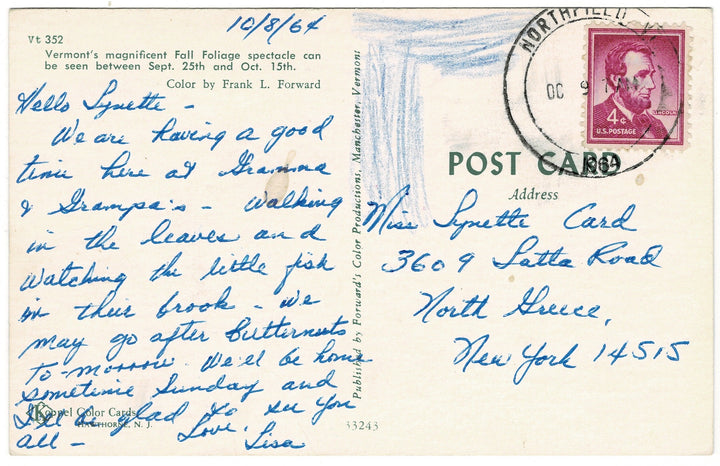 10/8/64
Vt 352
Vermont's magnificent Fall Foliage spectacle can
be seen between Sept. 25th and Oct. 15th.
Color by Frank L. Forward
Hello Lynette -
We are having a good
time here at Gramma
& Grampa's - Walking
in the leaves and
watching the little fish
in their brook - We
may go after butternuts
to-morrow. We'll be home
sometime Sunday and
I'll be glad to see you
all -
Love, Lisa
Koppel Color Cards
HAWTHORNE, N. J.
Published by Forward's Color Productions, Manchester, Vermont
33243
NORTHFIELD
OC 9
AM
1964
4¢
LINCOLN
U.S. POSTAGE
POST CARD
Address
Miss Lynette Card
3609 Latta Road
North Greece,
New York 14515